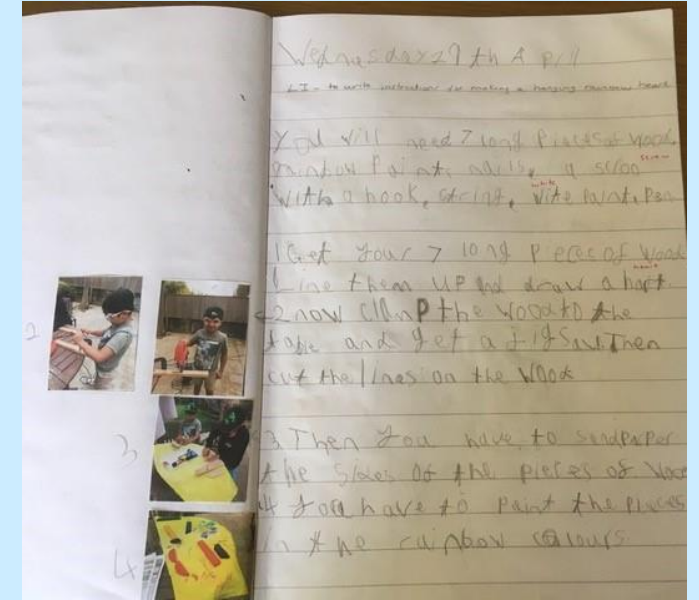 Wednesday 29th April
LI - to write instructions for making a hanging rainbow heart
You will need 7 long pieces of wood,
rainbow Paint, nails, a scroo
screw
with a hook, string, wite Paint, Pen
white
1 Get your 7 long pieces of wood
Line them up and draw a hart
2 now clamp the wood to the
2
table and get a jigsaw. Then
cut the lines on the wood
3 Then you have to sandpaper
3
the sides of the pieces of wood
4 you have to paint the pieces
in the rainbow colours
4